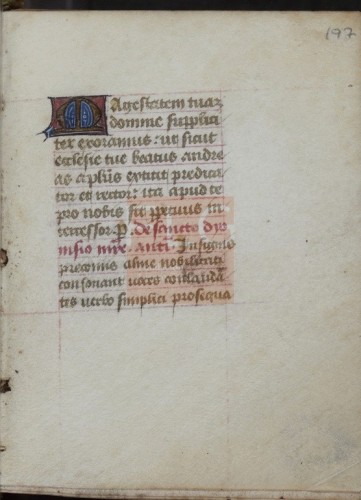 197
Magestatem tuaz
domine suppliti
ter exoramus: ut sicut
ecclesie tue beatus andre
as aplus extitit predica
tor et rector: ita apud te
pro nobis sit ppetuus in
tercessor. P. de sancto dyo
nisio mre. anth. Insignis
preconiis alme nobilitati
consonant uoces conlauda
tes uerbo simplici prosequa